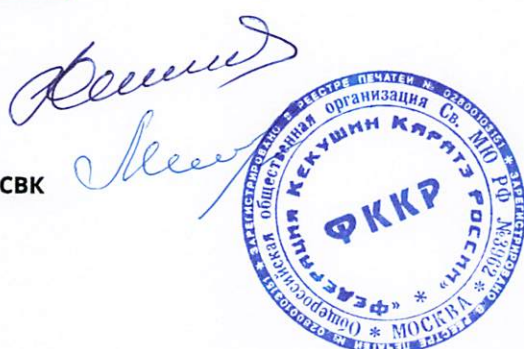 СВК
* ЗАРЕГИСТРИРОВАНО В РЕЕСТРЕ ПЕЧАТЕЙ № 02800103161 * ЗАРЕГИСТРИРОВАНО В РЕЕСТРЕ ПЕЧАТЕЙ № 02800103161
Общероссийская общественная организация Св. МЮ РФ №3962 * МОСКВА *
«ФЕДЕРАЦИЯ КЕКУШИН КАРАТЭ РОССИИ» *
ФККР